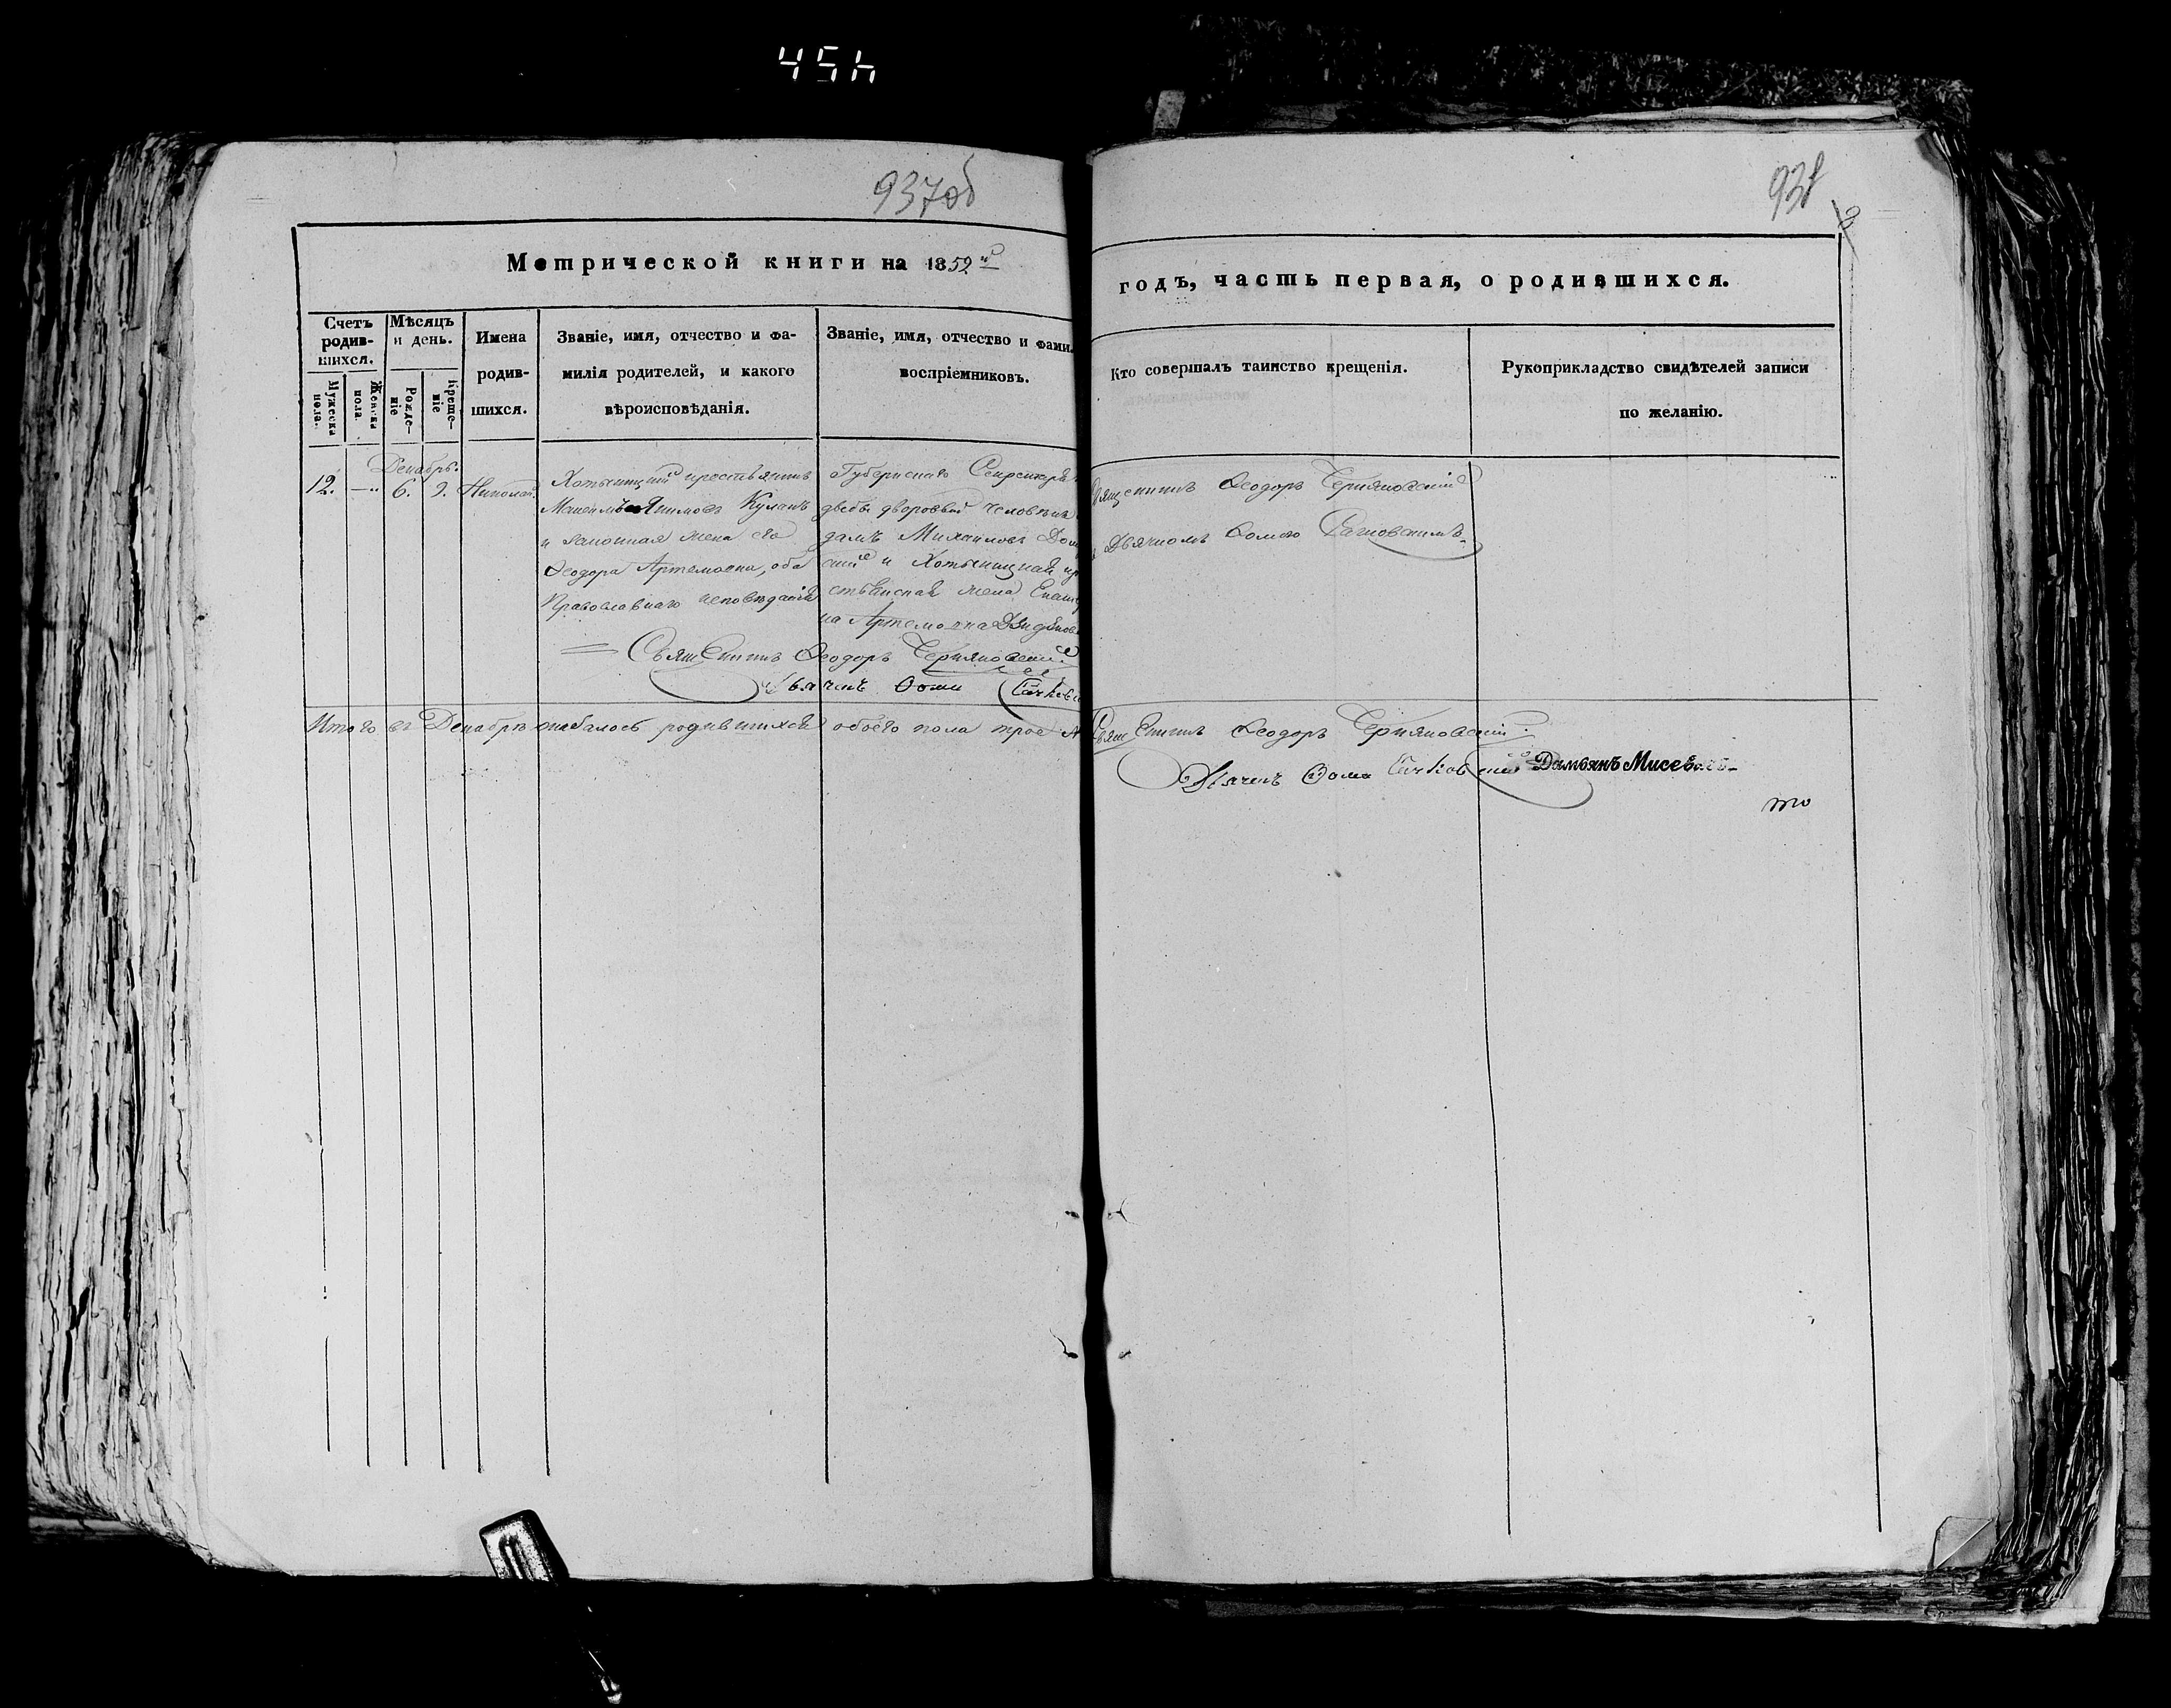 454
937об
938
Метрической книги на 1852й
годъ, часть первая, о родившихся.
Счетъ родив-шихся.
Мѣсяцъ и день.
Мужеска пола.
Женска пола.
Рожде-ніе
Креще-ніе
Имена
родив-
шихся.
Званіе, имя, отчество и фа-
милія родителей, и какого
вѣроисповѣданія.
Званіе, имя, отчество и фами.
воспріемниковъ.
Кто совершалъ таинство крещенія.
Рукоприкладство свидѣтелей записи
по желанію.
Декабрь.
12. — 6. 9. Николай.
Хотыницкій крестьянинъ
Максимъ Якимовъ Кулакъ
и законная жена его
Ѳеодора Артемовна, оба
Православнаго исповѣданія
Губернскаго Секретаря
дворовый человѣкъ
Михайловъ Дом
скій и Хотыницкая кр
стьянская жена Екате
на Артемовна
Священникъ Ѳеодоръ Черняковскій
Дьячекъ Ѳома
Священникъ Ѳеодоръ Черняковскій
Дьячкомъ Ѳомою
Итого въ Декабрѣ родившихся обоего пола трое
Священникъ Ѳеодоръ Черняковскій
Дьячекъ Ѳома
Дамьянъ Мисевичъ